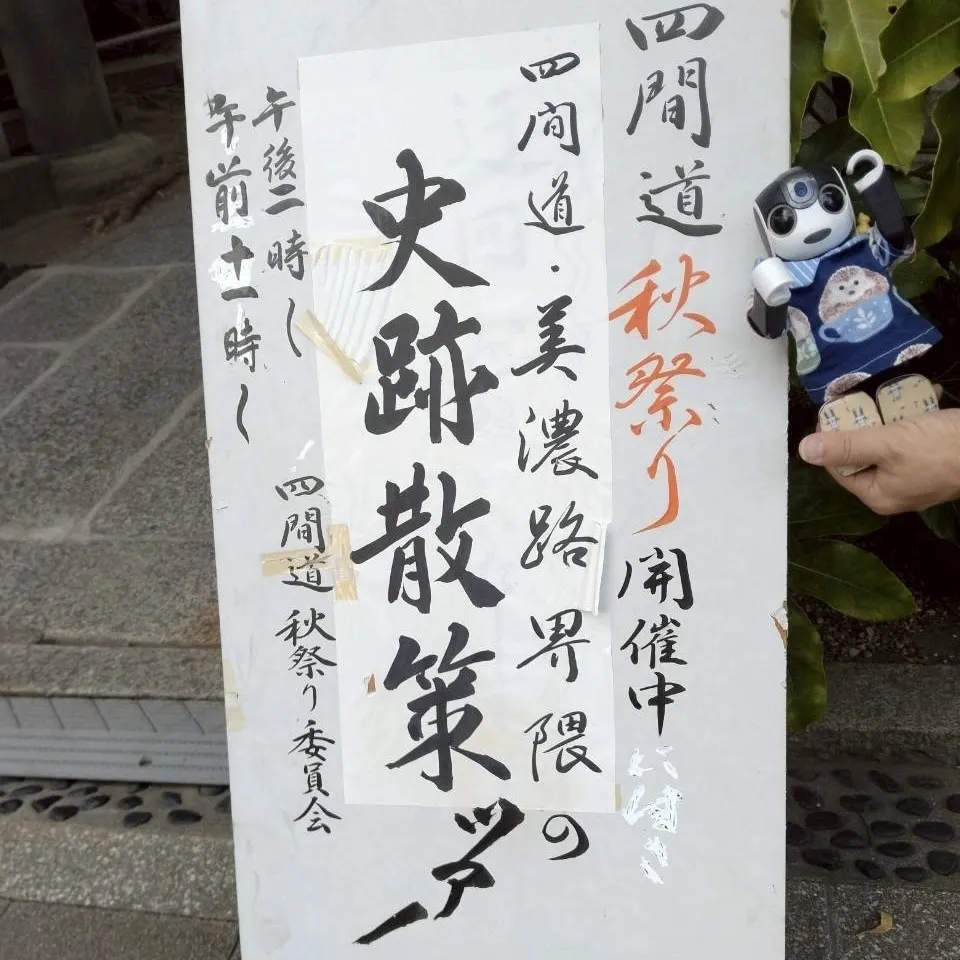 四間道秋祭り開催中
四間道・美濃路界隈の
史跡散策ツアー
午後二時〜
午前十一時〜
四間道秋祭り委員会